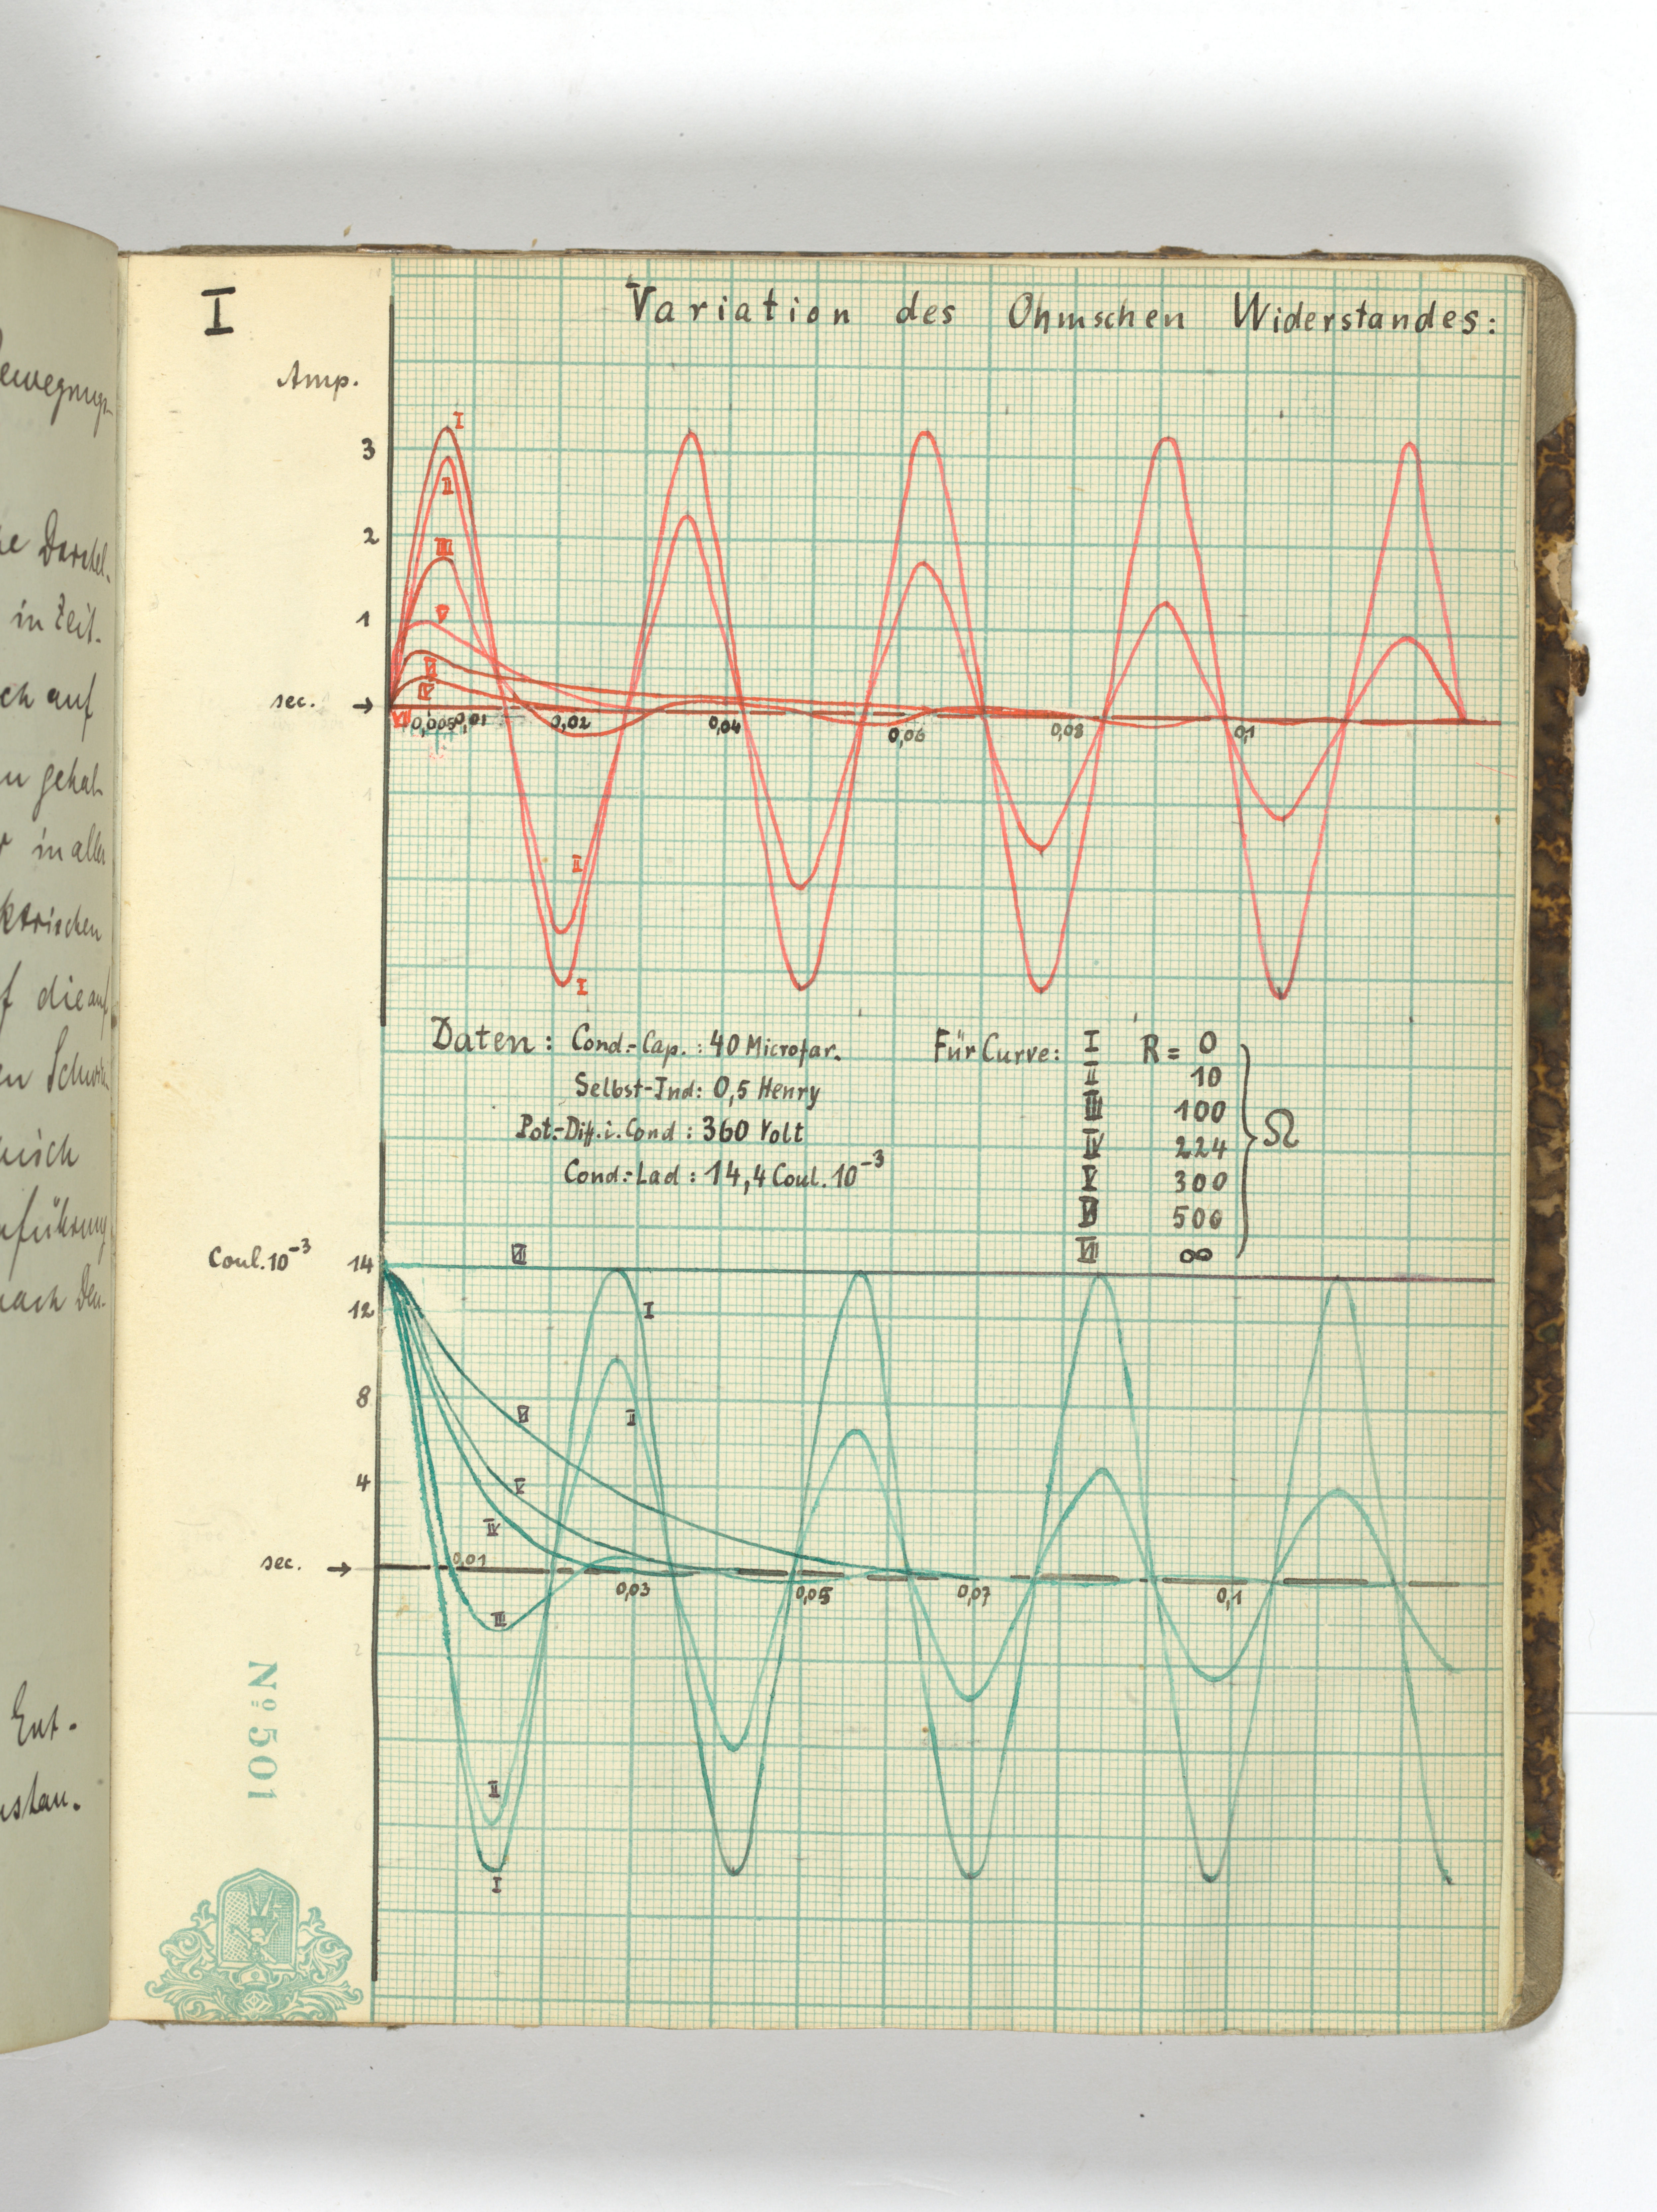 I
Variation des Ohmschen Widerstandes:
Amp.
I
3
II
2
III
1
V
sec. →
0,005 0,01 0,02 0,04 0,06 0,08 0,1
II
I
Daten: Cond.-Cap.: 40 Microfar.
Selbst-Ind: 0,5 Henry
Pot.-Diff. i. Cond: 360 Volt
Cond.-Lad: 14,4 Coul. 10⁻³
Für Curve: I R = 0
II 10
III 100
IV 224
V 300
VI 500
VII ∞
Ω
Coul. 10⁻³ 14 VII
12 I
8 VI II
4 V
IV
sec. → 0,01
0,03 0,05 0,07 0,1
III
II
I
Nº 501
in Zeit-
ch auf
in aller
ktrischen
f die auf
Ent-